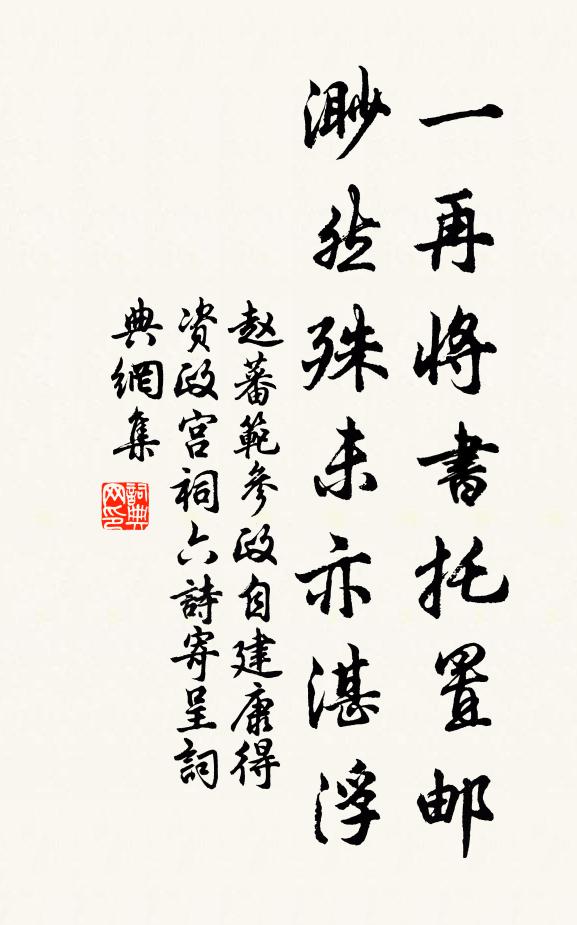 一再將書托置邮
渺然殊未亦湛浮
赵蕃範參政自建康得
资政宫祠六詩寄呈詞
典網集
詞典
网印